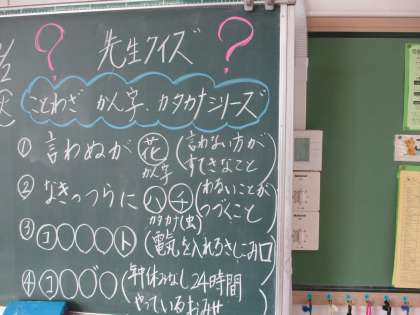 ? 先生クイズ ?
ことわざ かん字、カタカナシリーズ
① 言わぬが花(言わない方が
かん字 すてきなこと)
② なきっつらにハチ(わるいことが
カタカナ(虫) つづくこと)
③ コ〇〇〇〇ト(電気を入れるさしこみ口
④ コ〇〇゛〇(年中休みなし24時間
やっているおみせ